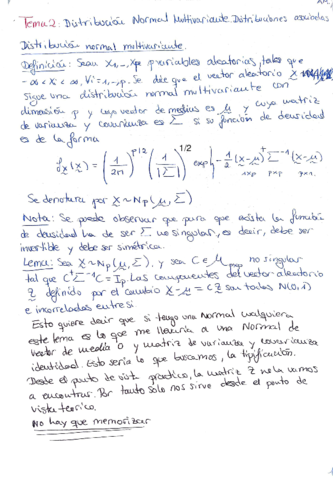 Tema 2: Distribución Normal Multivariante. Distribuciones asociadas
Distribución normal multivariante.
Definición: Sean X₁,..., Xp p variables aleatorias, tales que
-∞ < Xᵢ < ∞, ∀i = 1,..., p. Se dice que el vector aleatorio X
sigue una distribución normal multivariante con
dimensión p y cuyo vector de medias es μ y cuya matriz
de varianza y covarianza es Σ si su función de densidad
es de la forma
f_X(x) = (1/2π)^{p/2} (1/|Σ|)^{1/2} exp{-1/2 (x-μ)^t Σ^{-1} (x-μ)}
1xp pxp px1
Se denota por X ~ Np(μ, Σ)
Nota: Se puede observar que para que exista la función
de densidad ha de ser Σ no singular, es decir, debe ser
invertible y debe ser simétrica.
Lema: Sea X ~ Np(μ, Σ), y sea C ∈ M_{pxp} no singular
tal que C^t Σ^{-1} C = Ip. Las componentes del vector aleatorio
Z definido por el cambio X - μ = CZ son todas N(0,1)
e incorreladas entre si
Esto quiere decir que si tengo una Normal cualquiera
este lema es lo que me llevaría a una Normal de
vector de media 0 y matriz de varianza y covarianza
identidad. Esto sería lo que buscamos, la tipificación.
Desde el punto de vista practico, la matriz Z no la vamos
a encontrar. Por tanto solo nos sirve desde el punto de
vista teorico.
No hay que memorizar